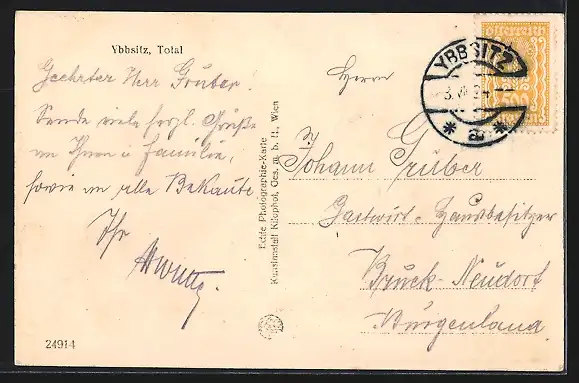 Ybbsitz, Total
Geehrter Herr Gruber!
Sende viele herzl. Grüße
an Ihnen u Familie,
sowie an alle Bekannte
Ihr
24914
Echte Photographie-Karte
Kunstanstalt Kilophot, Ges. m. b. H., Wien
österreich
500
kronen
YBBSITZ
a
Herrn
Johann Gruber
Gastwirt- Hausbesitzer
Bruck-Neudorf
Burgenland